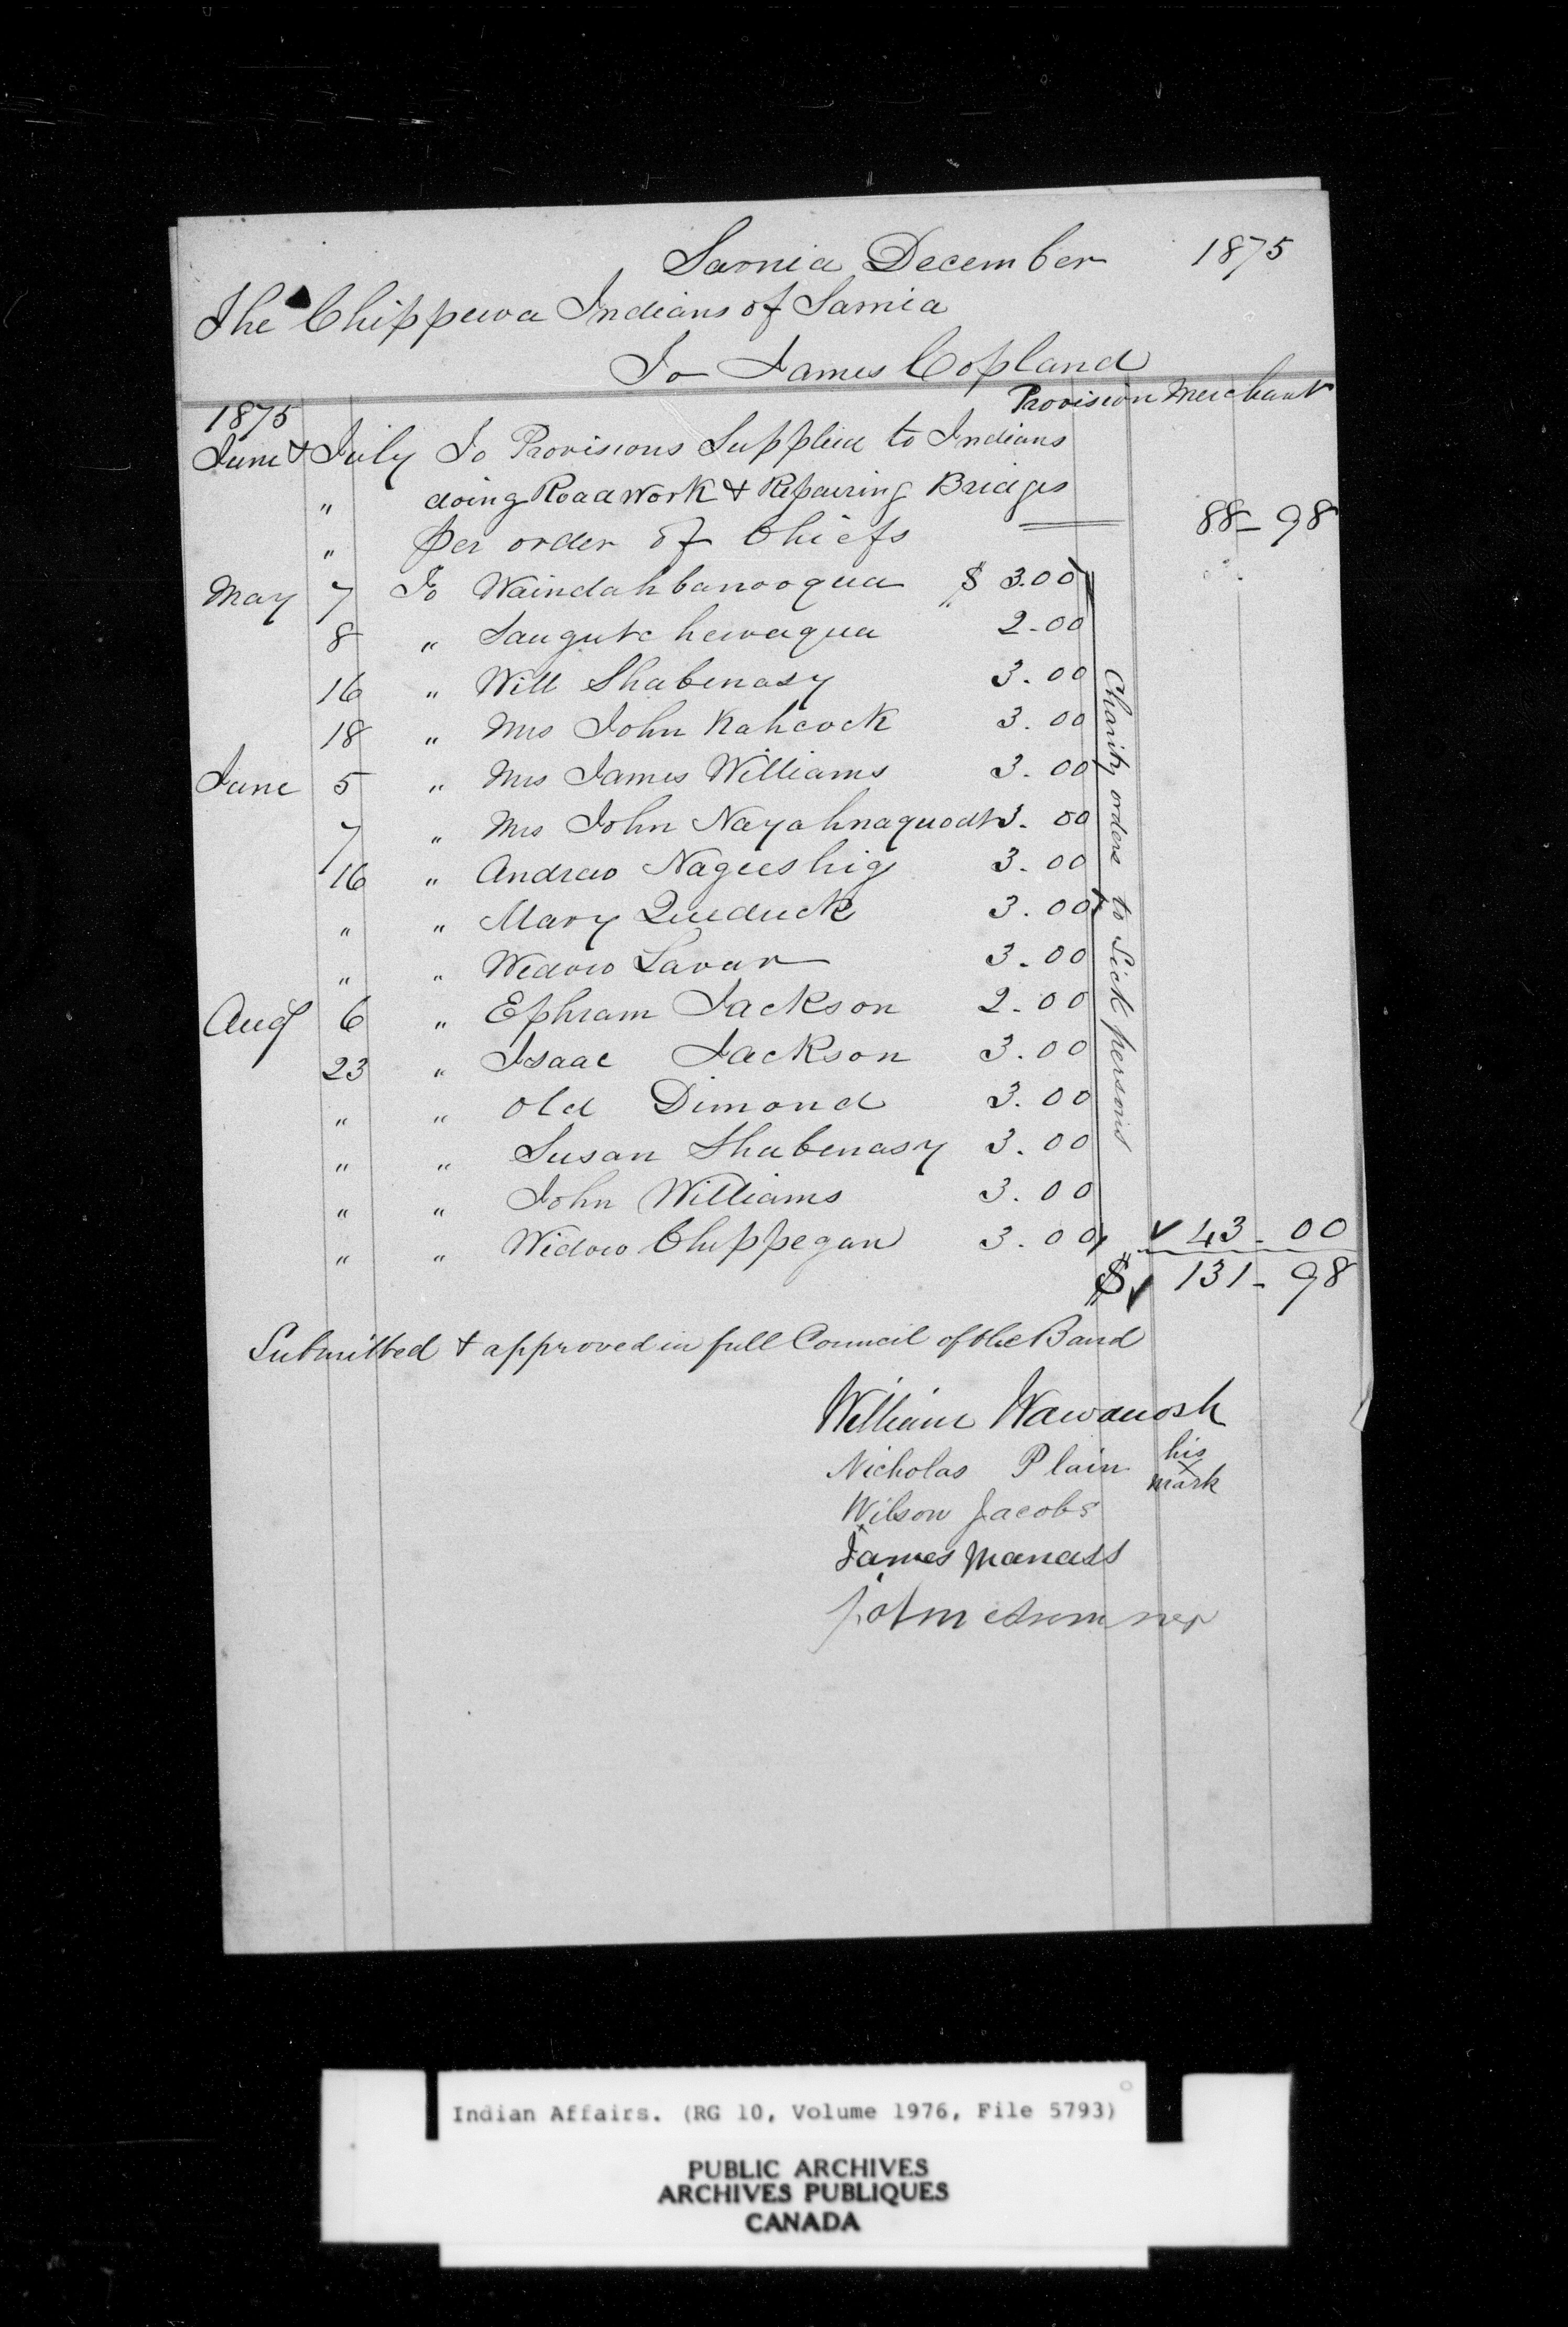 Sarnia December 1875
The Chippewa Indians of Sarnia
To James Copland
Provision Merchant
1875
June & July To Provisions Supplied to Indians
" doing Road Work & Repairing Bridges
" per order of Chiefs 88-98
May 7 To Waindahbanooqua $ 3.00
8 " Saugutchewaqua 2-00
16 " Will Shabenasy 3.00
18 " Mrs John Kahcock 3.00
June 5 " Mrs James Williams 3.00
7 " Mrs John Nayahnaquodt 3.00
16 " Andrew Nageeshig 3.00
" " Mary Queduck 3.00
" " Wedow Lavar 3.00
Aug 6 " Ephram Jackson 2.00
23 " Isaac Jackson 3.00
" " Old Dimond 3.00
" " Susan Shabenasy 3.00
" " John Williams 3.00
" " Widow Chippegan 3.00 43-00
Charity orders to Sick persons
$ 131-98
Submitted & approved in full Council of the Band
William Wawanosh
Nicholas Plain his x mark
Wilson Jacobs
James Manass
John
Indian Affairs. (RG 10, Volume 1976, File 5793)
PUBLIC ARCHIVES
ARCHIVES PUBLIQUES
CANADA